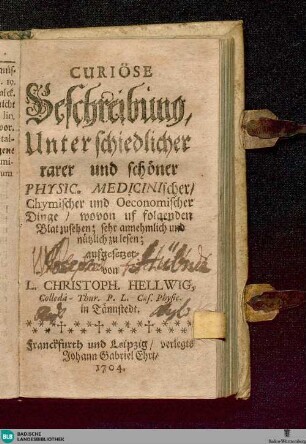 CURIÖSE
Beschreibung,
Unterschiedlicher
rarer und schöner
PHYSIC. MEDICINIscher/
Chymischer und Oeconomischer
Dinge / wovon uf folgenden
Blat zusehen; sehr annehmlich und
nützlich zu lesen;
aufgesetzet
von
L. CHRISTOPH. HELLWIG,
Colledâ - Thur. P. L. Cæs. Physic.
in Tännstedt.
Franckfurth und Leipzig / verlegts
Johann Gabriel Ehrt/
1704.
BLB
BADISCHE
LANDESBIBLIOTHEK
Baden-Württemberg